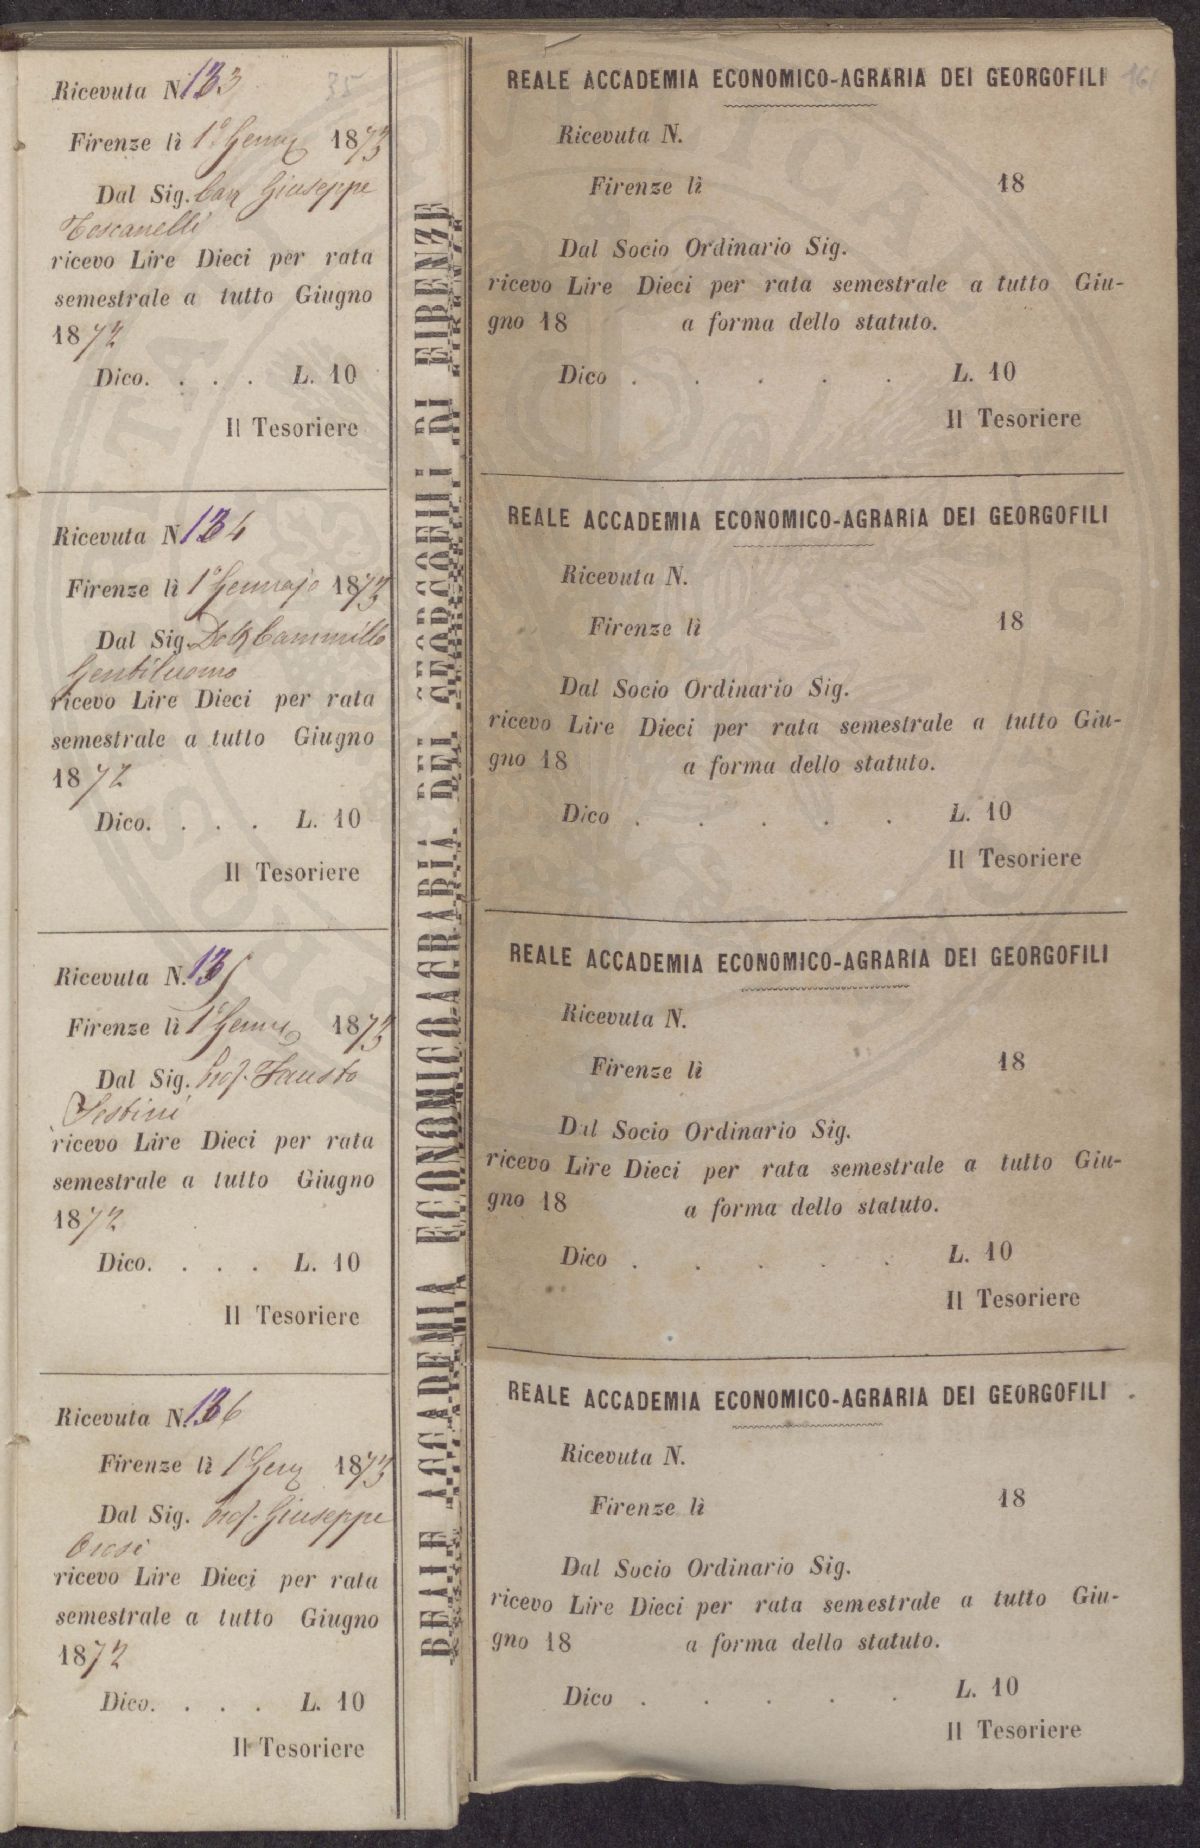 35
Ricevuta N. 133
Firenze lì 1° Genn 1873
Dal Sig. Cav Giuseppe
Toscanelli
ricevo Lire Dieci per rata
semestrale a tutto Giugno
1872
Dico. . . . L. 10
Il Tesoriere
Ricevuta N. 134
Firenze lì 1° Gennajo 1873
Dal Sig. Dott Cammillo
Gentiluomo
ricevo Lire Dieci per rata
semestrale a tutto Giugno
1872
Dico. . . . L. 10
Il Tesoriere
Ricevuta N. 135
Firenze lì 1° Genn 1873
Dal Sig. Prof. Fausto
Sestini
ricevo Lire Dieci per rata
semestrale a tutto Giugno
1872
Dico. . . . L. 10
Il Tesoriere
Ricevuta N. 136
Firenze lì 1° Gen 1873
Dal Sig. Prof. Giuseppe
Orosi
ricevo Lire Dieci per rata
semestrale a tutto Giugno
1872
Dico. . . . L. 10
Il Tesoriere
REALE ACCADEMIA ECONOMICO-AGRARIA DEI GEORGOFILI DI FIRENZE
REALE ACCADEMIA ECONOMICO-AGRARIA DEI GEORGOFILI
161
Ricevuta N.
Firenze lì 18
Dal Socio Ordinario Sig.
ricevo Lire Dieci per rata semestrale a tutto Giu-
gno 18 a forma dello statuto.
Dico . . . . . L. 10
Il Tesoriere
REALE ACCADEMIA ECONOMICO-AGRARIA DEI GEORGOFILI
Ricevuta N.
Firenze lì 18
Dal Socio Ordinario Sig.
ricevo Lire Dieci per rata semestrale a tutto Giu-
gno 18 a forma dello statuto.
Dico . . . . . L. 10
Il Tesoriere
REALE ACCADEMIA ECONOMICO-AGRARIA DEI GEORGOFILI
Ricevuta N.
Firenze lì 18
Dal Socio Ordinario Sig.
ricevo Lire Dieci per rata semestrale a tutto Giu-
gno 18 a forma dello statuto.
Dico . . . . . L. 10
Il Tesoriere
REALE ACCADEMIA ECONOMICO-AGRARIA DEI GEORGOFILI
Ricevuta N.
Firenze lì 18
Dal Socio Ordinario Sig.
ricevo Lire Dieci per rata semestrale a tutto Giu-
gno 18 a forma dello statuto.
Dico . . . . . L. 10
Il Tesoriere